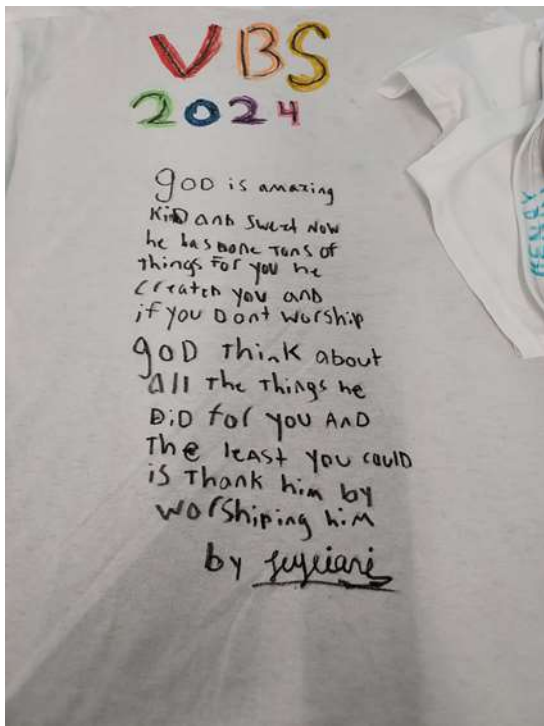 VBS
2024
goD is amazing
KiD and Swert Now
he has Done Tons of
things For you he
createD you and
if you Dont worship
goD Think about
all The Things he
DiD for you AnD
The least you could
is Thank him by
worshiping him
by
HENRY